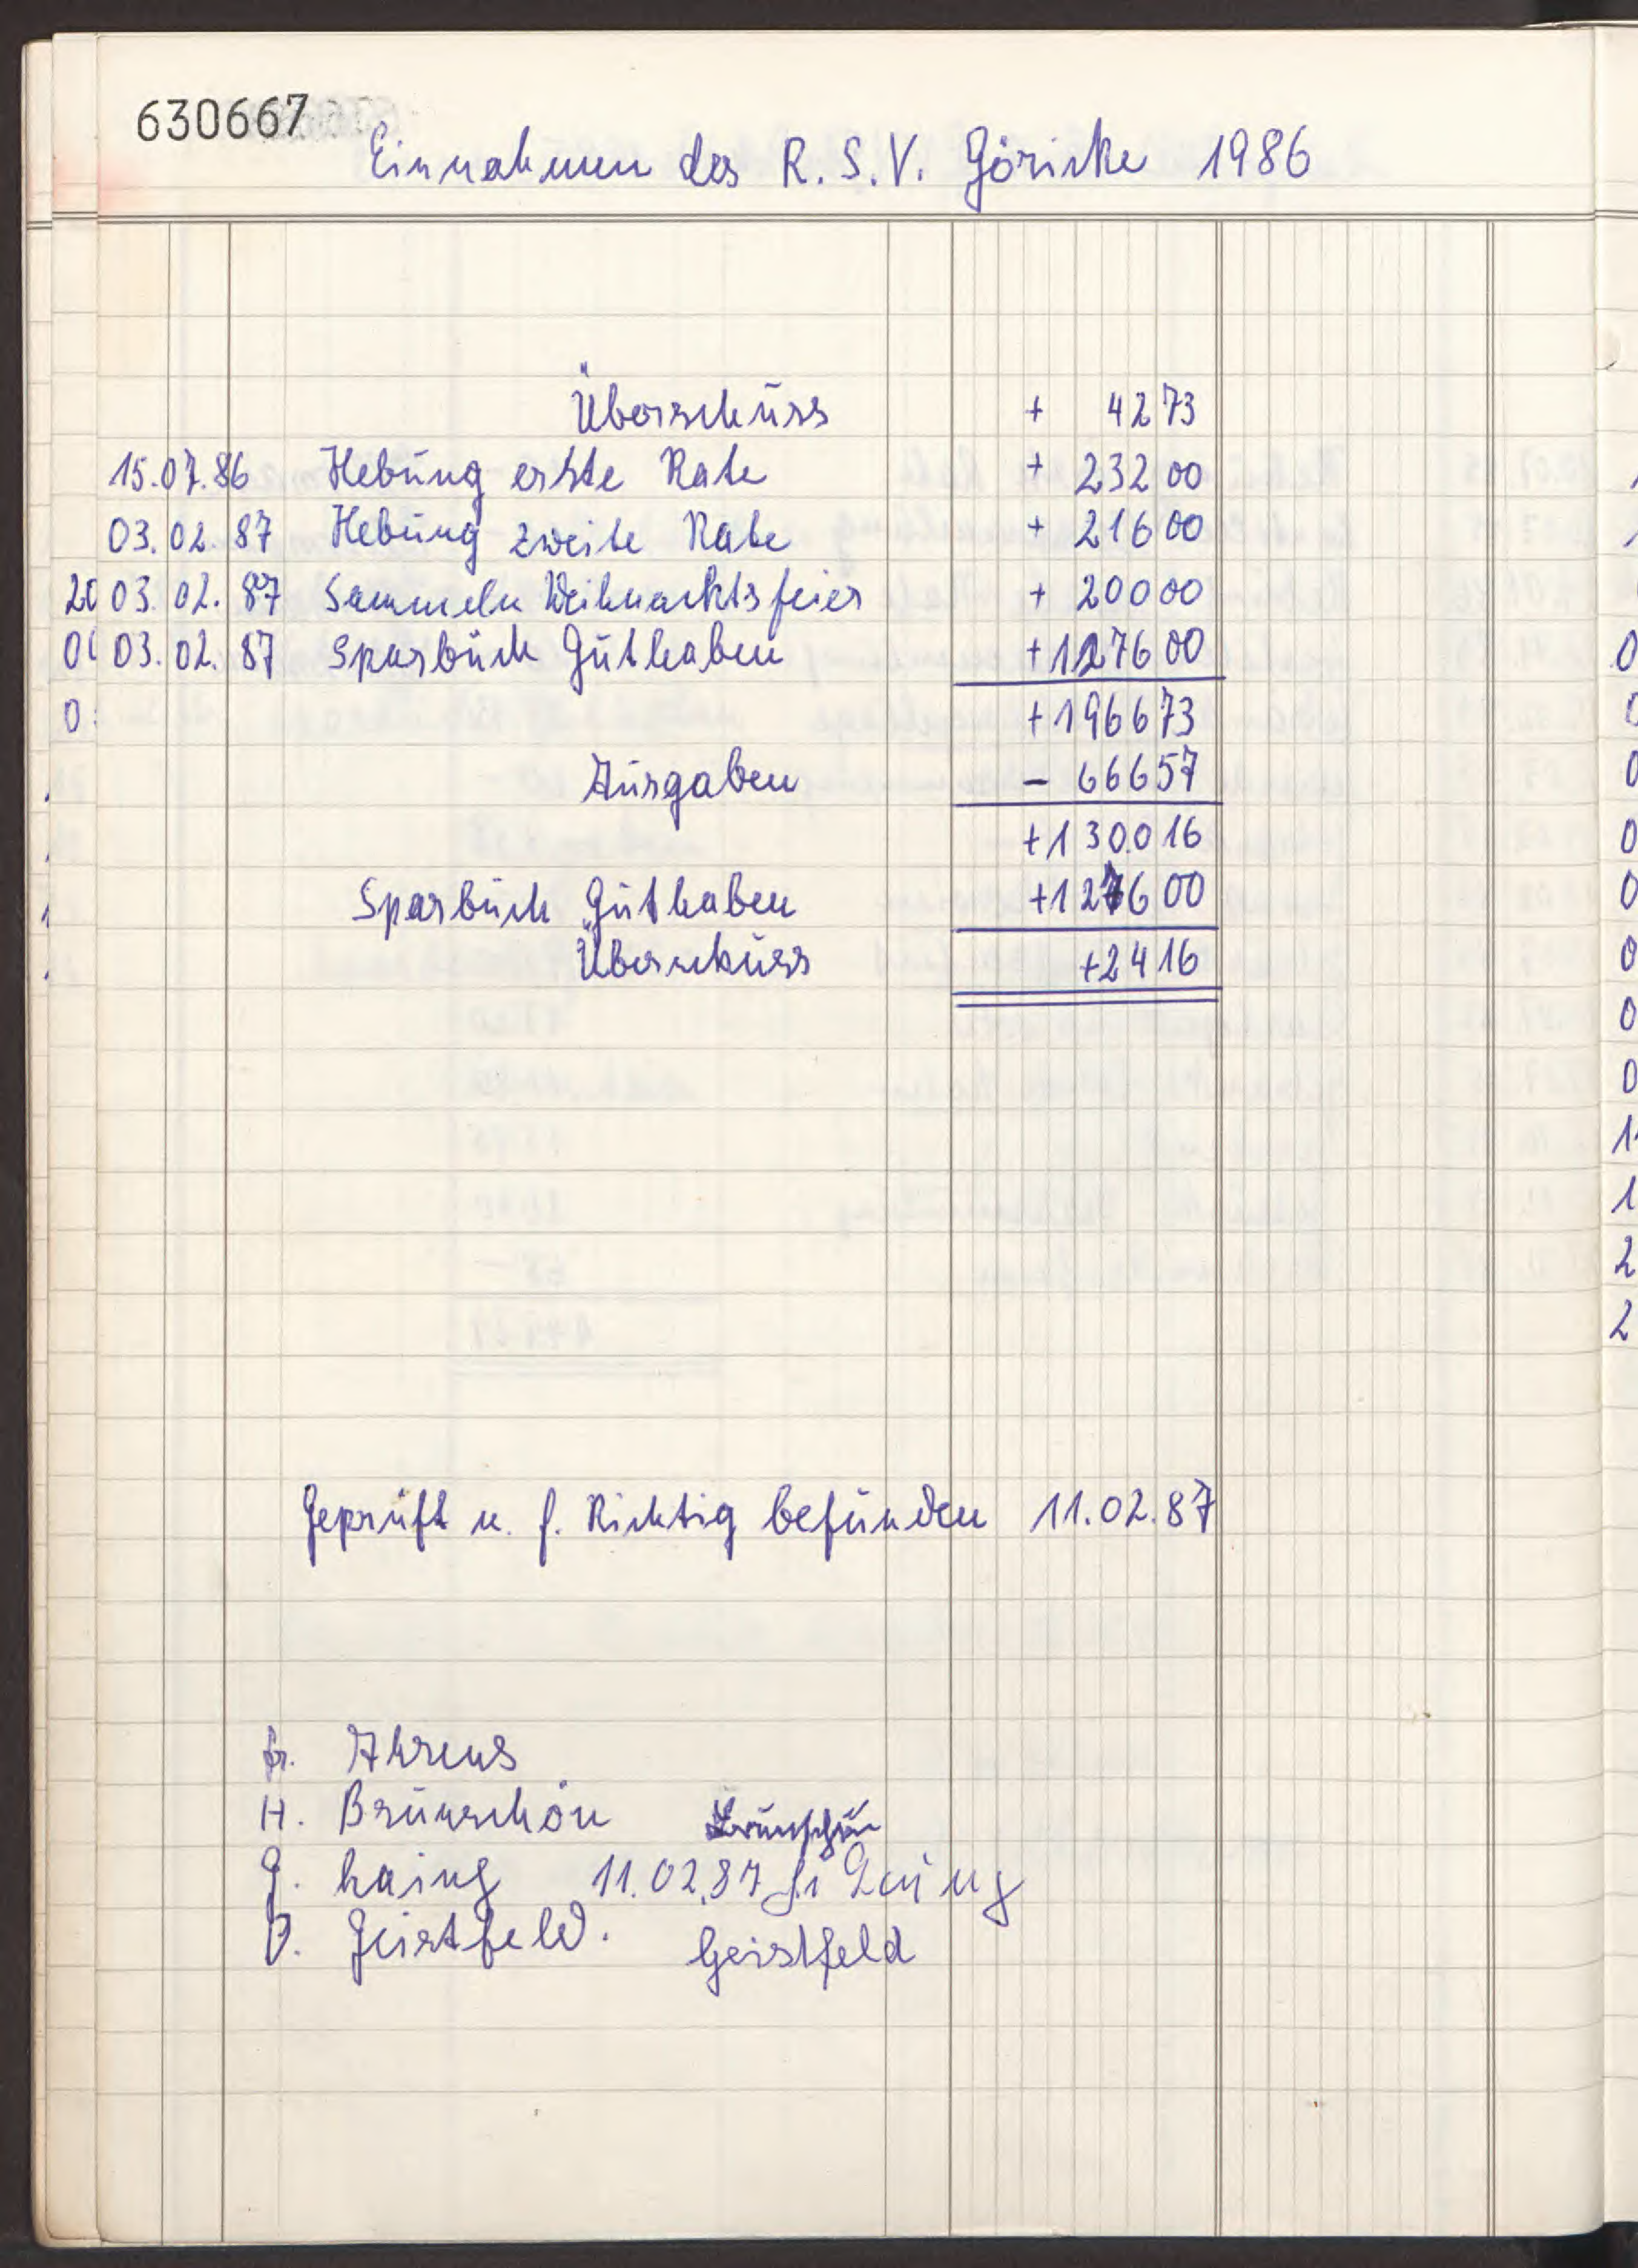 630667
Einnahmen des R. S. V. Göricke 1986
Überschuss + 42 73
15.07.86 Hebung erste Rate + 232 00
03.02.87 Hebung zweite Rate + 216 00
20 03.02.87 Sammeln Weihnachtsfeier + 200 00
03.02.87 Sparbuch Guthaben +1276 00
0 +1966 73
Ausgaben - 666 57
+1300 16
Sparbuch Guthaben +1276 00
Überschuss +24 16
Geprüft u. f. Richtig befunden 11.02.87
fr. Ahrens
H. Brünschön Brünschön
G. Laing 11.02.87 Laing
D. Geistfeld. Geistfeld